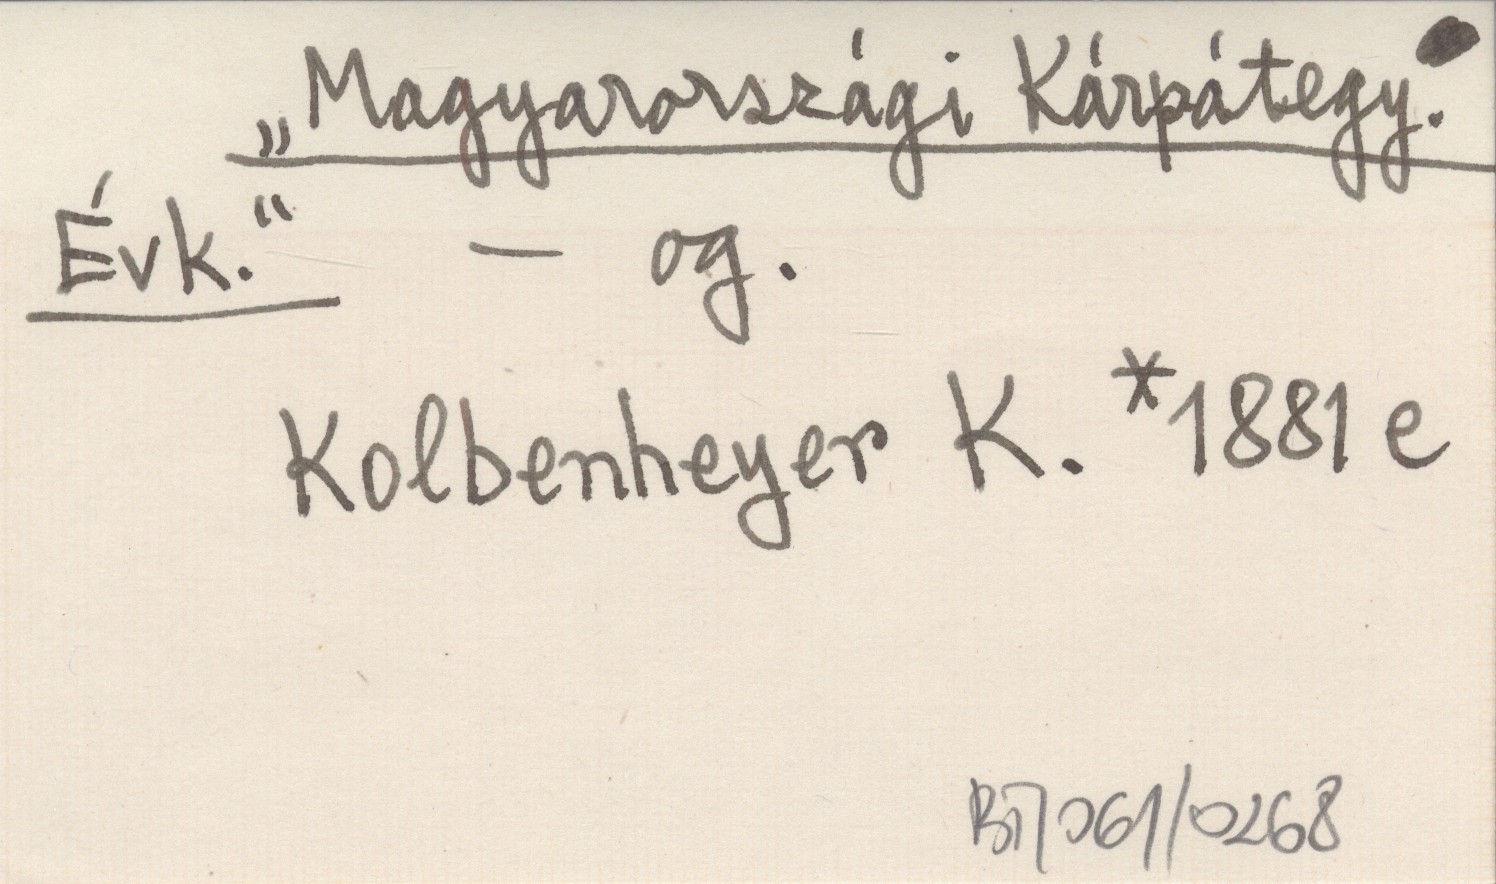 „Magyarországi Kárpátegy.
Évk.“ – og.
Kolbenheyer K. *1881 e
Bi/061/0268